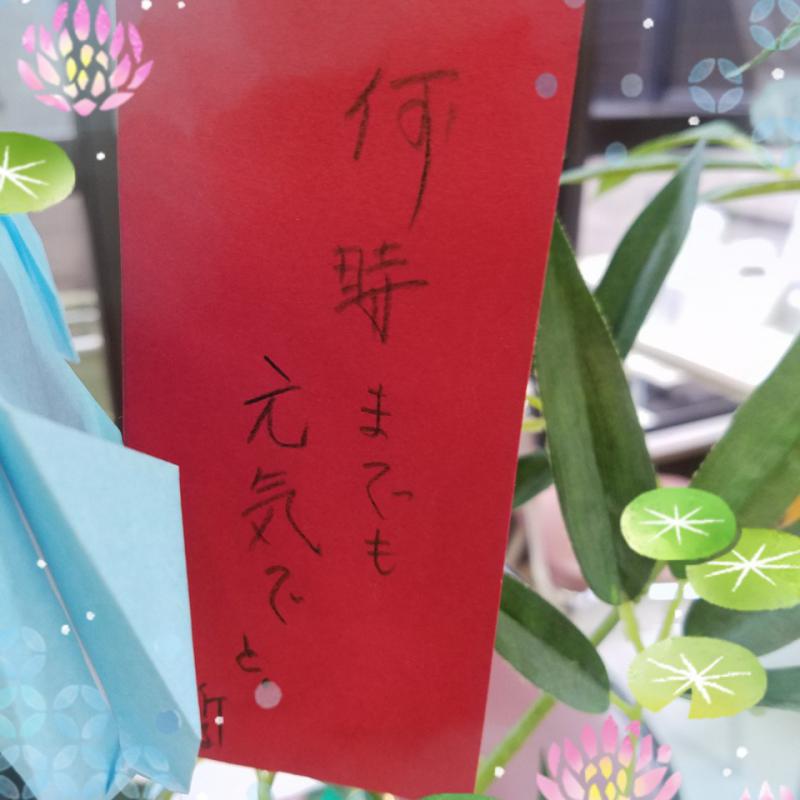 何時までも
元気でと。